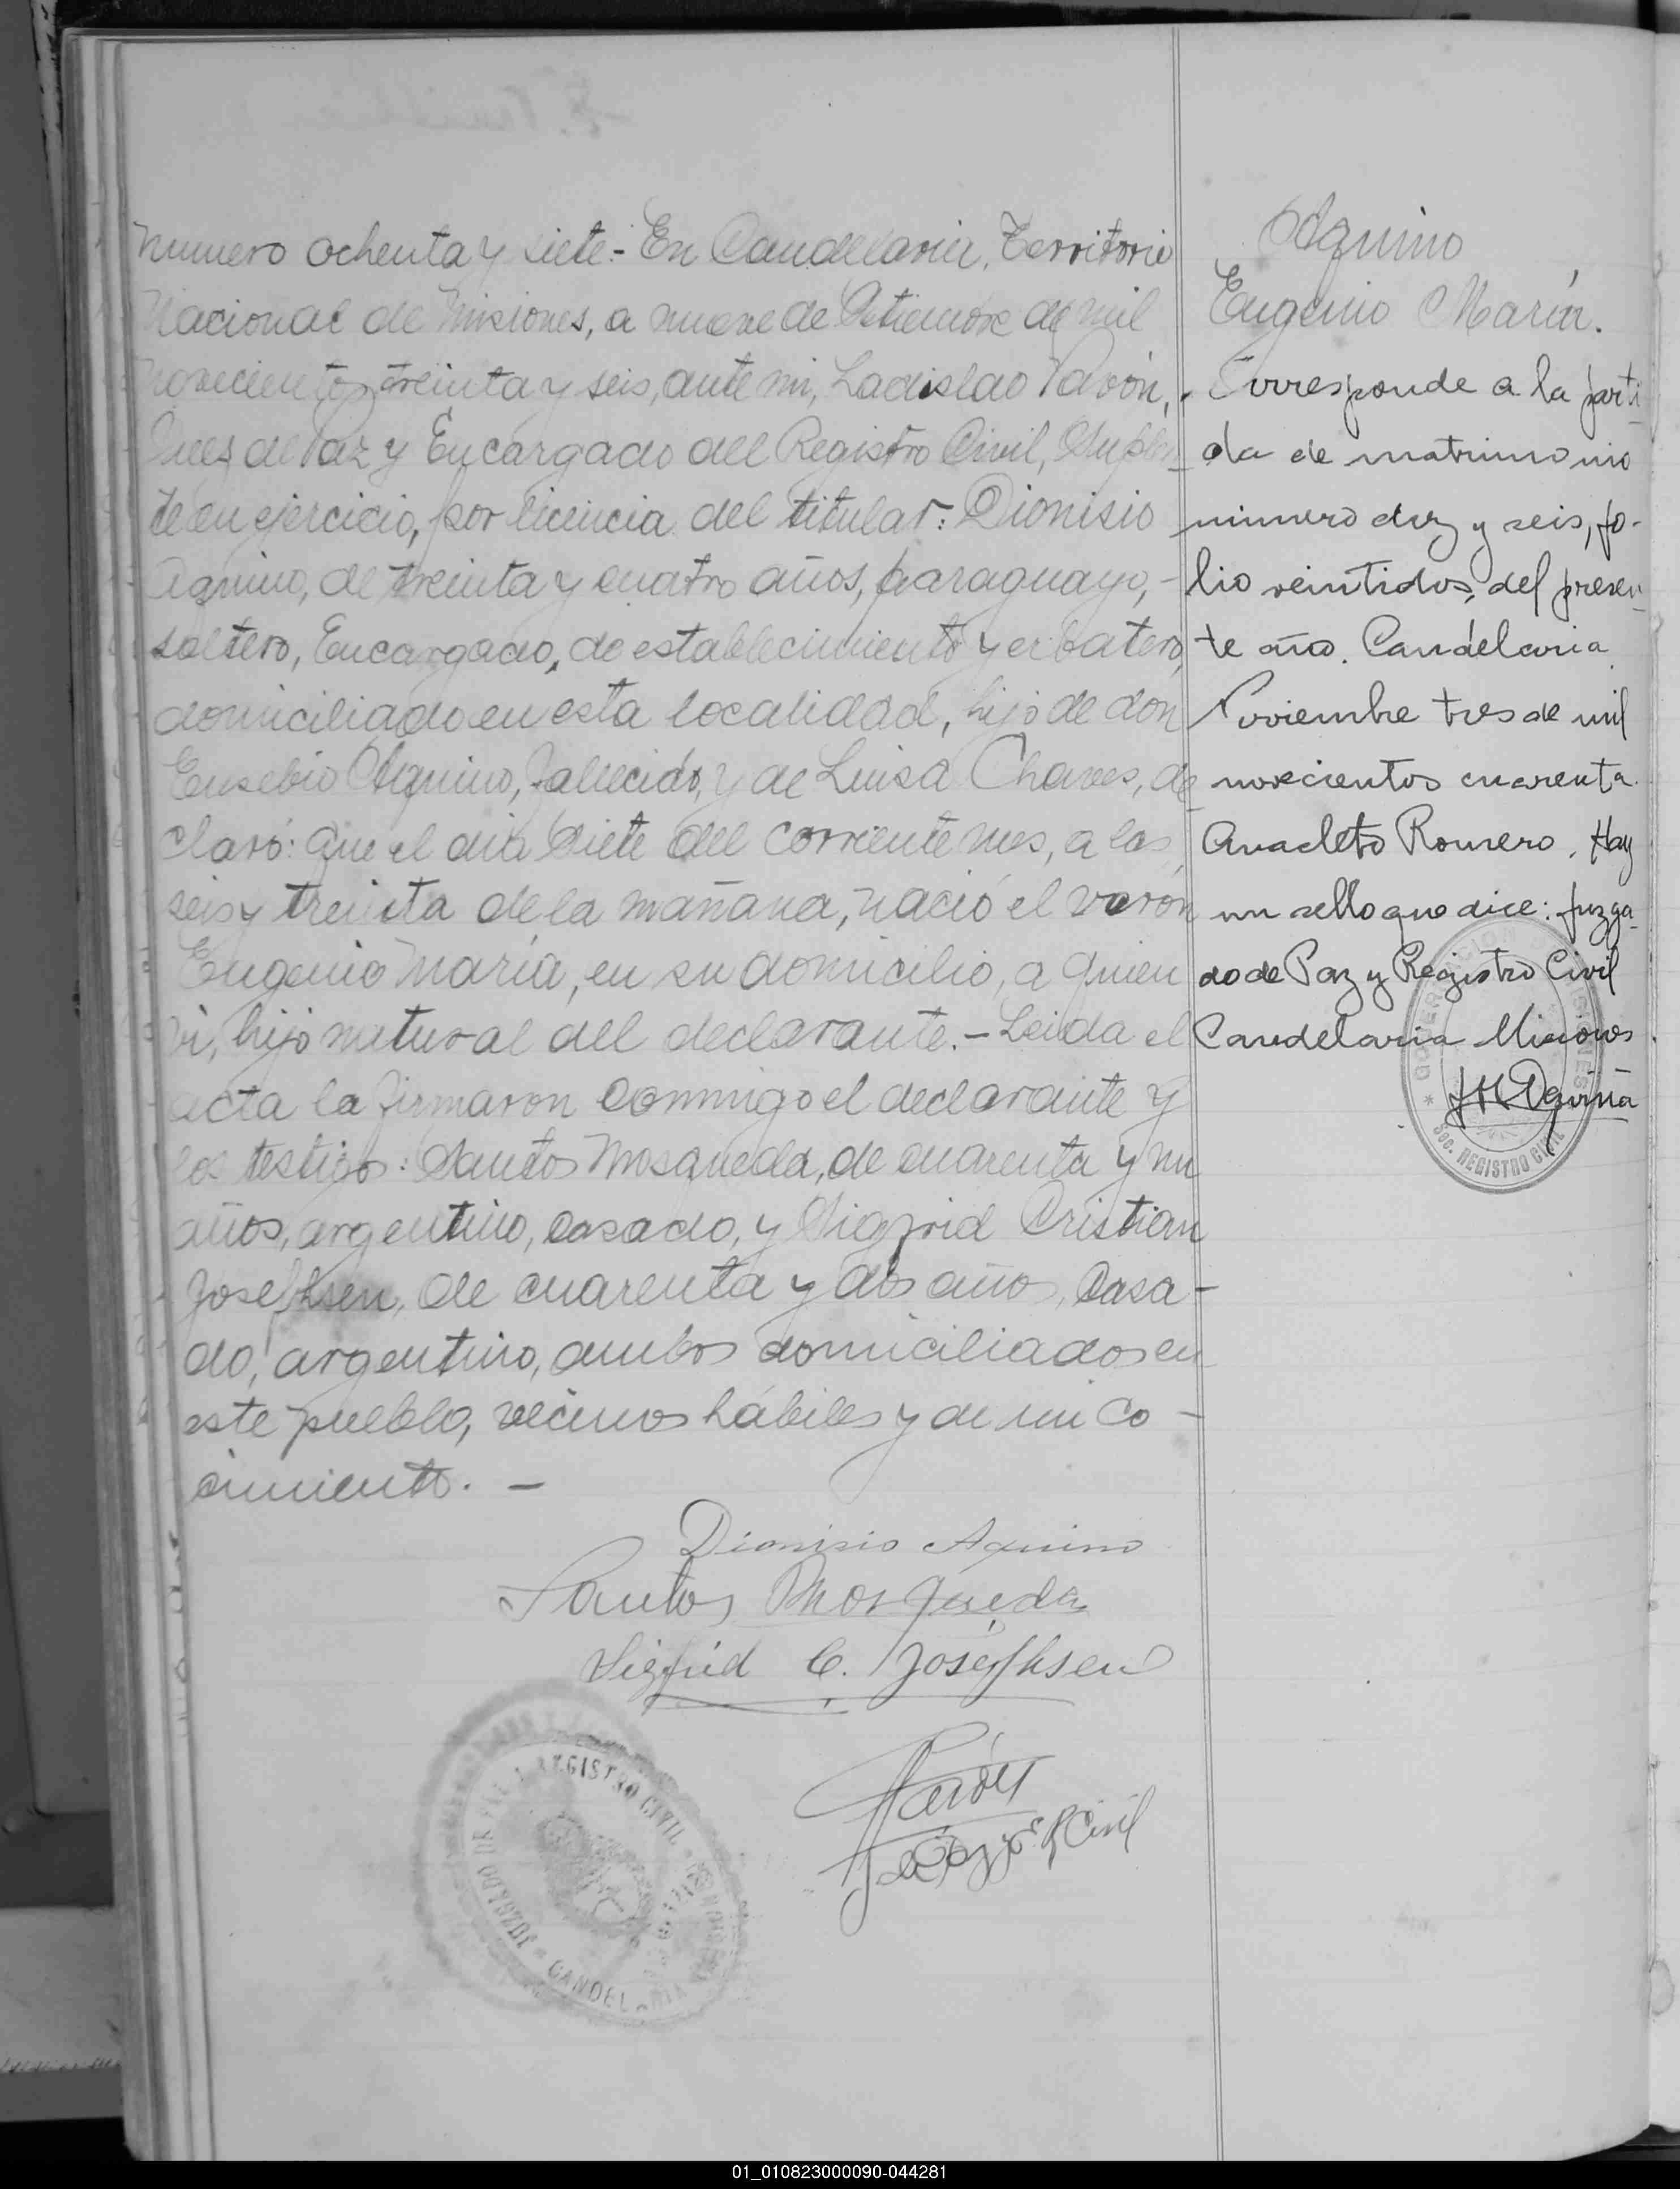 Numero ochenta y siete.- En Candelaria, Territorio
Nacional de Misiones, a nueve de Setiembre de mil
novecientos treinta y seis, ante mi, Ladislao Pavón,
Juez de Paz y Encargado del Registro Civil, Suplen-
te en ejercicio, por licencia del titular: Dionisio
Aquino, de treinta y cuatro años, paraguayo,-
soltero, Encargado, de establecimiento yerbatero,
domiciliado en esta localidad, hijo de don
Eusebio Aquino, fallecido, y de Luisa Chaves, de-
claró: Que el dia siete del corriente mes, a las
seis y treinta de la mañana, nació el varón
Eugenio María, en su domicilio, a quien
vi, hijo natural del declarante.- Leida el
acta la firmaron conmigo el declarante y
los testigos: Santos Mosqueda, de cuarenta y un
años, argentino, casado, y Sigfrid Cristian
Josephsen, de cuarenta y dos años, casa-
do, argentino, ambos domiciliados en
este pueblo, vecinos hábiles y de mi co-
cimiento. -
Dionisio Aquino
Santos Mosqueda
Sigfrid C. Josephsen
Pavón
J de Paz y E. R Civil
JUZGADO DE PAZ Y REGISTRO CIVIL
CANDELARIA
Aquino
Eugenio María.
Corresponde a la parti-
da de matrimonio
número diez y seis, fo-
lio veintidos, del presen-
te año. Candelaria
Noviembre tres de mil
novecientos cuarenta.
Anacleto Romero. Hay
un sello que dice: Juzga-
do de Paz y Registro Civil
Candelaria Misiones
GOBERNACION MISIONES
SEC. REGISTRO CIVIL
01_010823000090-044281